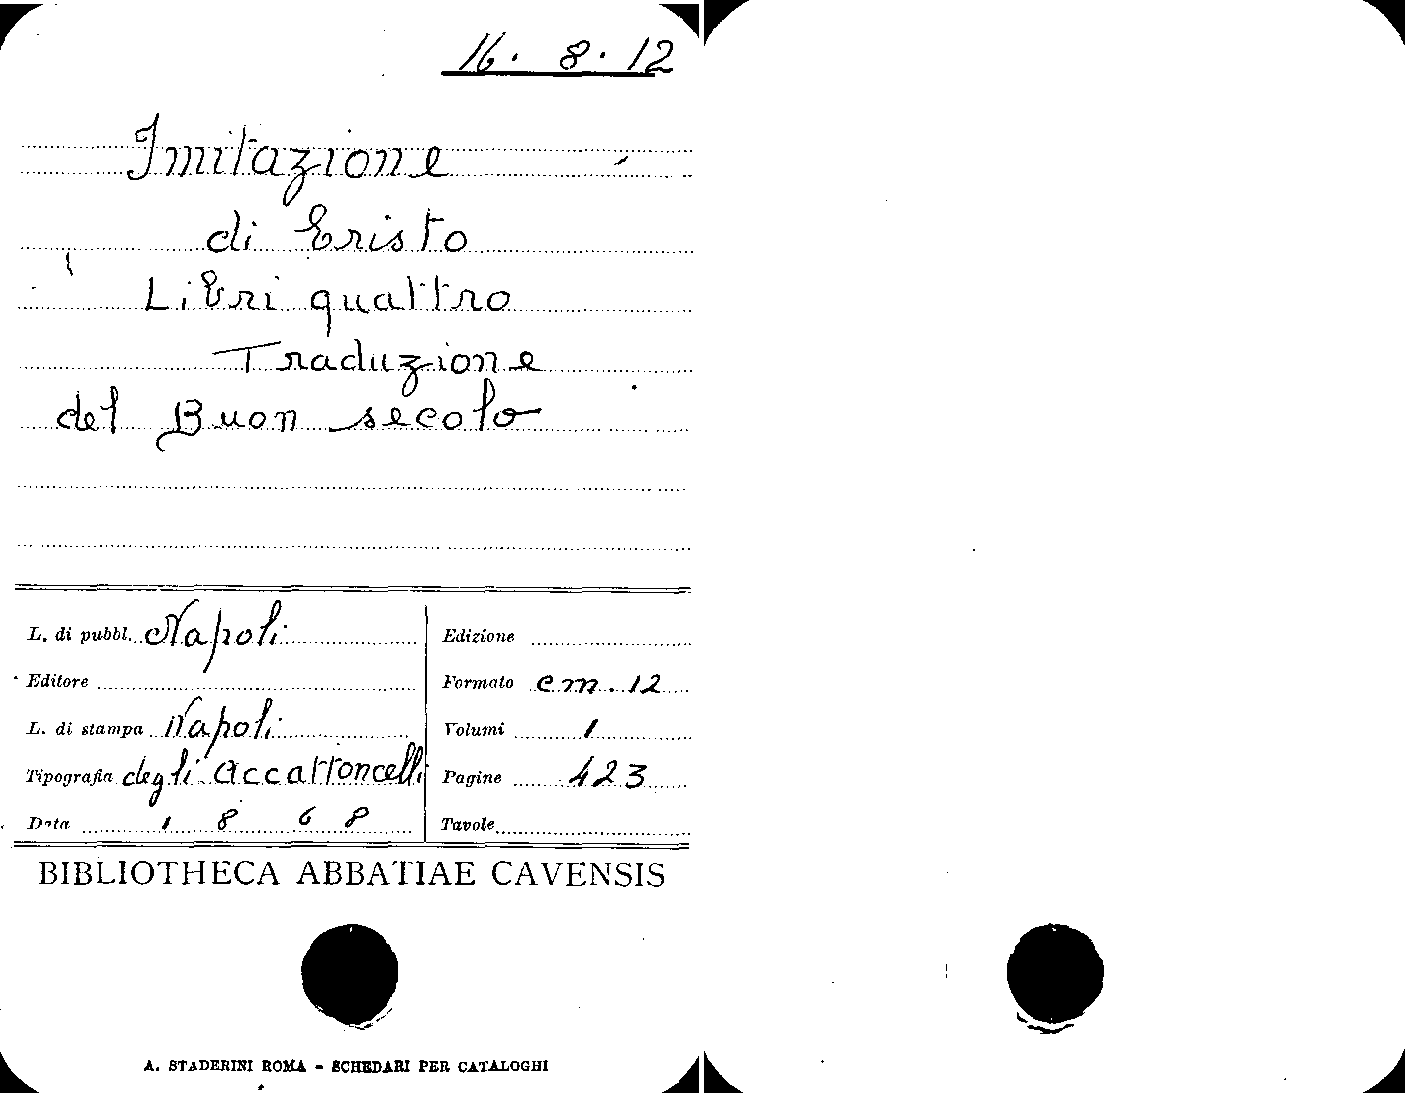 16. 8. 12
Imitazione
di Cristo
Libri quattro
Traduzione
del Buon secolo
L. di pubbl. Napoli
Editore
L. di stampa Napoli
Tipografia degli Accattoncelli
Data 1868
Edizione
Formato cm. 12
Volumi 1
Pagine 423
Tavole
BIBLIOTHECA ABBATIAE CAVENSIS
A. STADERINI ROMA - SCHEDARI PER CATALOGHI